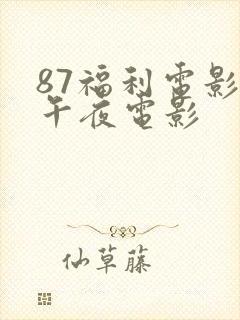 87福利电影
午夜电影
仙草藤